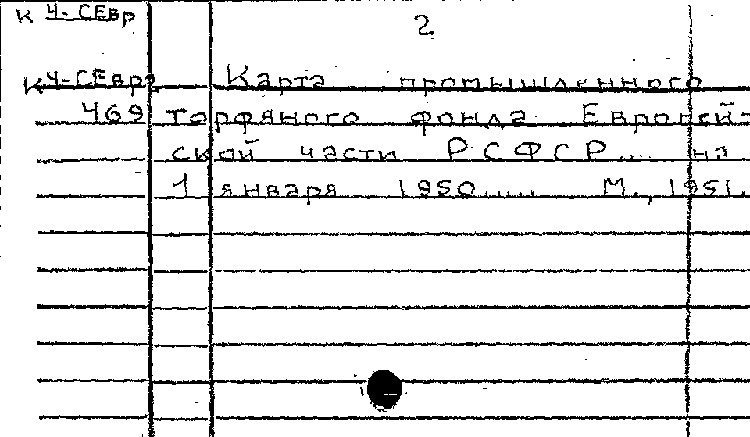 К Ч-СЕвр
2
К Ч-СЕвр2 Карта промышленного
469 торфяного фонда Европей-
ской части РСФСР... на
1 января 1950..... М., 1951.